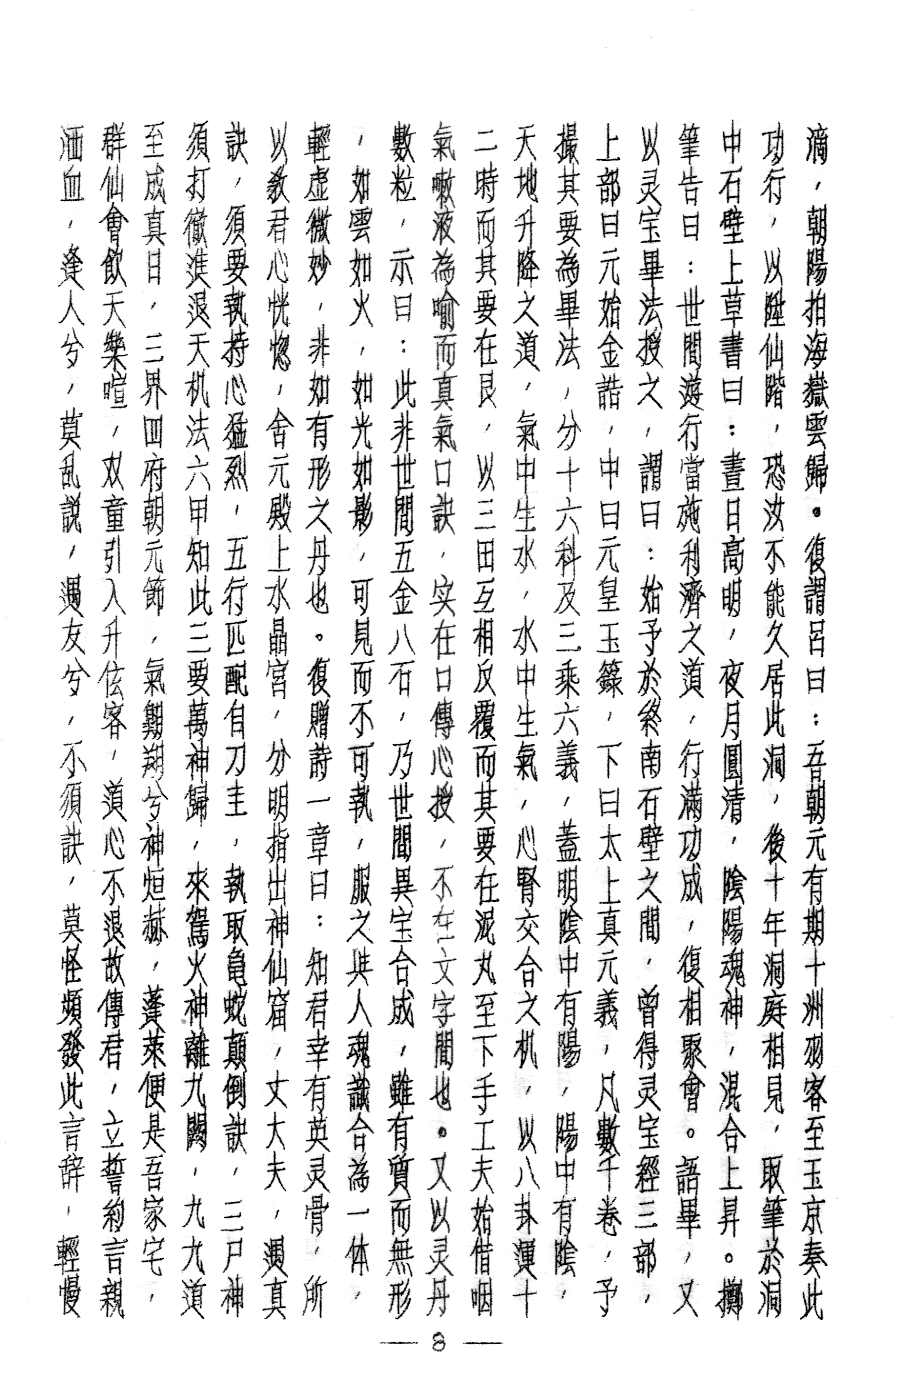 滴，朝陽拍海嶽雲歸。復謂呂曰：吾朝元有期十洲羽客至玉京奏此
功行，以陞仙階，恐汝不能久居此洞，後十年洞庭相見，取筆於洞
中石壁上草書曰：晝日高明，夜月圓清，陰陽魂神，混合上昇。擲
筆告曰：世間游行當施利濟之道，行滿功成，復相聚會。語畢，又
以灵宝畢法授之，謂曰：始予於終南石壁之間，曾得灵宝經三部，
上部曰元始金誥，中曰元皇玉籙，下曰太上真元義，凡數千卷，予
撮其要為畢法，分十六科及三乘六義，蓋明陰中有陽，陽中有陰，
天地升降之道，氣中生水，水中生氣，心腎交合之机，以八卦運十
二時而其要在艮，以三田互相反覆而其要在泥丸至下手工夫始借咽
氣嗽液為喻而真氣口訣，实在口傳心授，不在文字間也。又以灵丹
數粒，示曰：此非世間五金八石，乃世間異宝合成，雖有質而無形
，如雲如火，如光如影，可見而不可執，服之與人魂識合為一体，
輕虛微妙，非如有形之丹也。復贈詩一章曰：知君幸有英灵骨，所
以教君心恍惚，舍元殿上水晶宮，分明指出神仙窟，丈大夫，遇真
訣，須要執持心猛烈，五行匹配自刀圭，執取龟蛇顛倒訣，三尸神
須打徹進退天机法六甲知此三要萬神歸，來駕火神離九闕，九九道
至成真日，三界四府朝元節，氣翺翔兮神烜赫，蓬萊便是吾家宅，
群仙會飲天樂喧，双童引入升伭客，道心不退故傳君，立誓約言親
洒血，逢人兮，莫乱説，遇友兮，不須訣，莫怪頻發此言辞，輕慢
— 8 —